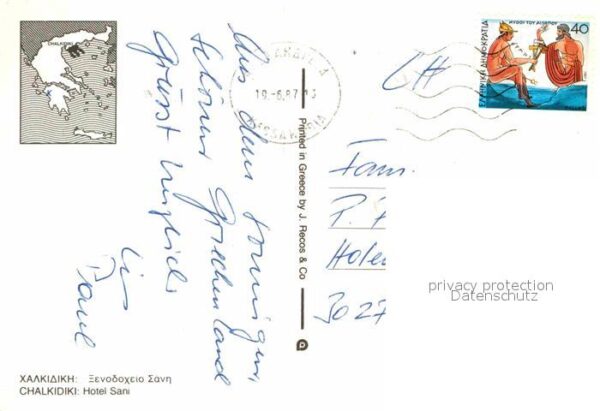 CHALKIDIKI
Aus dem sonnigen,
schönen Griechenland
grüsst herzlich
Paul
ΧΑΛΚΙΔΙΚΗ: Ξενοδοχείο Σάνη
CHALKIDIKI: Hotel Sani
Printed in Greece by J. Recos & Co
19-6.87
CH
ΜΥΘΟΙ ΤΟΥ ΑΙΣΩΠΟΥ
40
ΕΛΛΗΝΙΚΗ ΔΗΜΟΚΡΑΤΙΑ
Fam.
P.
3027
privacy protection
Datenschutz